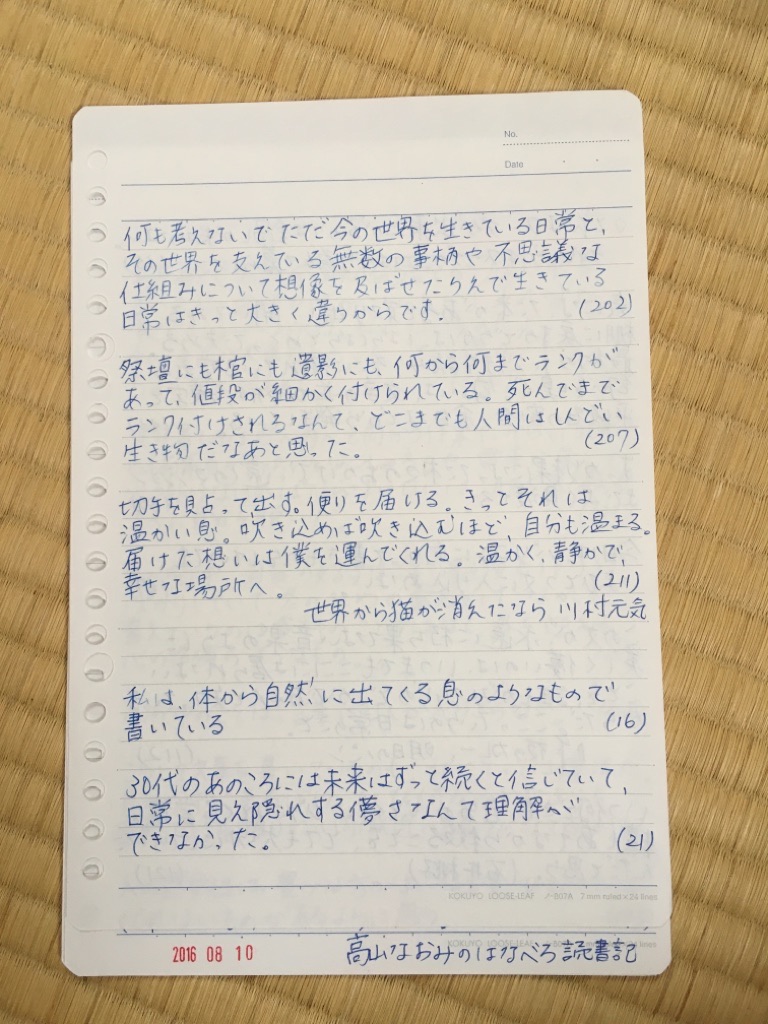 No.
Date
何も考えないでただ今の世界を生きている日常と、
その世界を支えている無数の事柄や不思議な
仕組みについて想像を及ばせたうえで生きている
日常はきっと大きく違うからです。 (202)
祭壇にも棺にも遺影にも、何から何までランクが
あって、値段が細かく付けられている。死んでまで
ランク付けされるなんて、どこまでも人間はしんどい
生き物だなあと思った。 (207)
切手を貼って出す。便りを届ける。きっとそれは
温かい息。吹き込めば吹き込むほど、自分も温まる。
届けた想いは僕を運んでくれる。温かく、静かで、
幸せな場所へ。 (211)
世界から猫が消えたなら 川村元気
私は、体から自然に出てくる息のようなもので
書いている (16)
30代のあのころには未来はずっと続くと信じていて、
日常に見え隠れする儚さなんて理解が
できなかった。 (21)
KOKUYO LOOSE-LEAF ノ-807A 7 mm ruled×24 lines
2016 08 10
高山なおみのはなべろ読書記